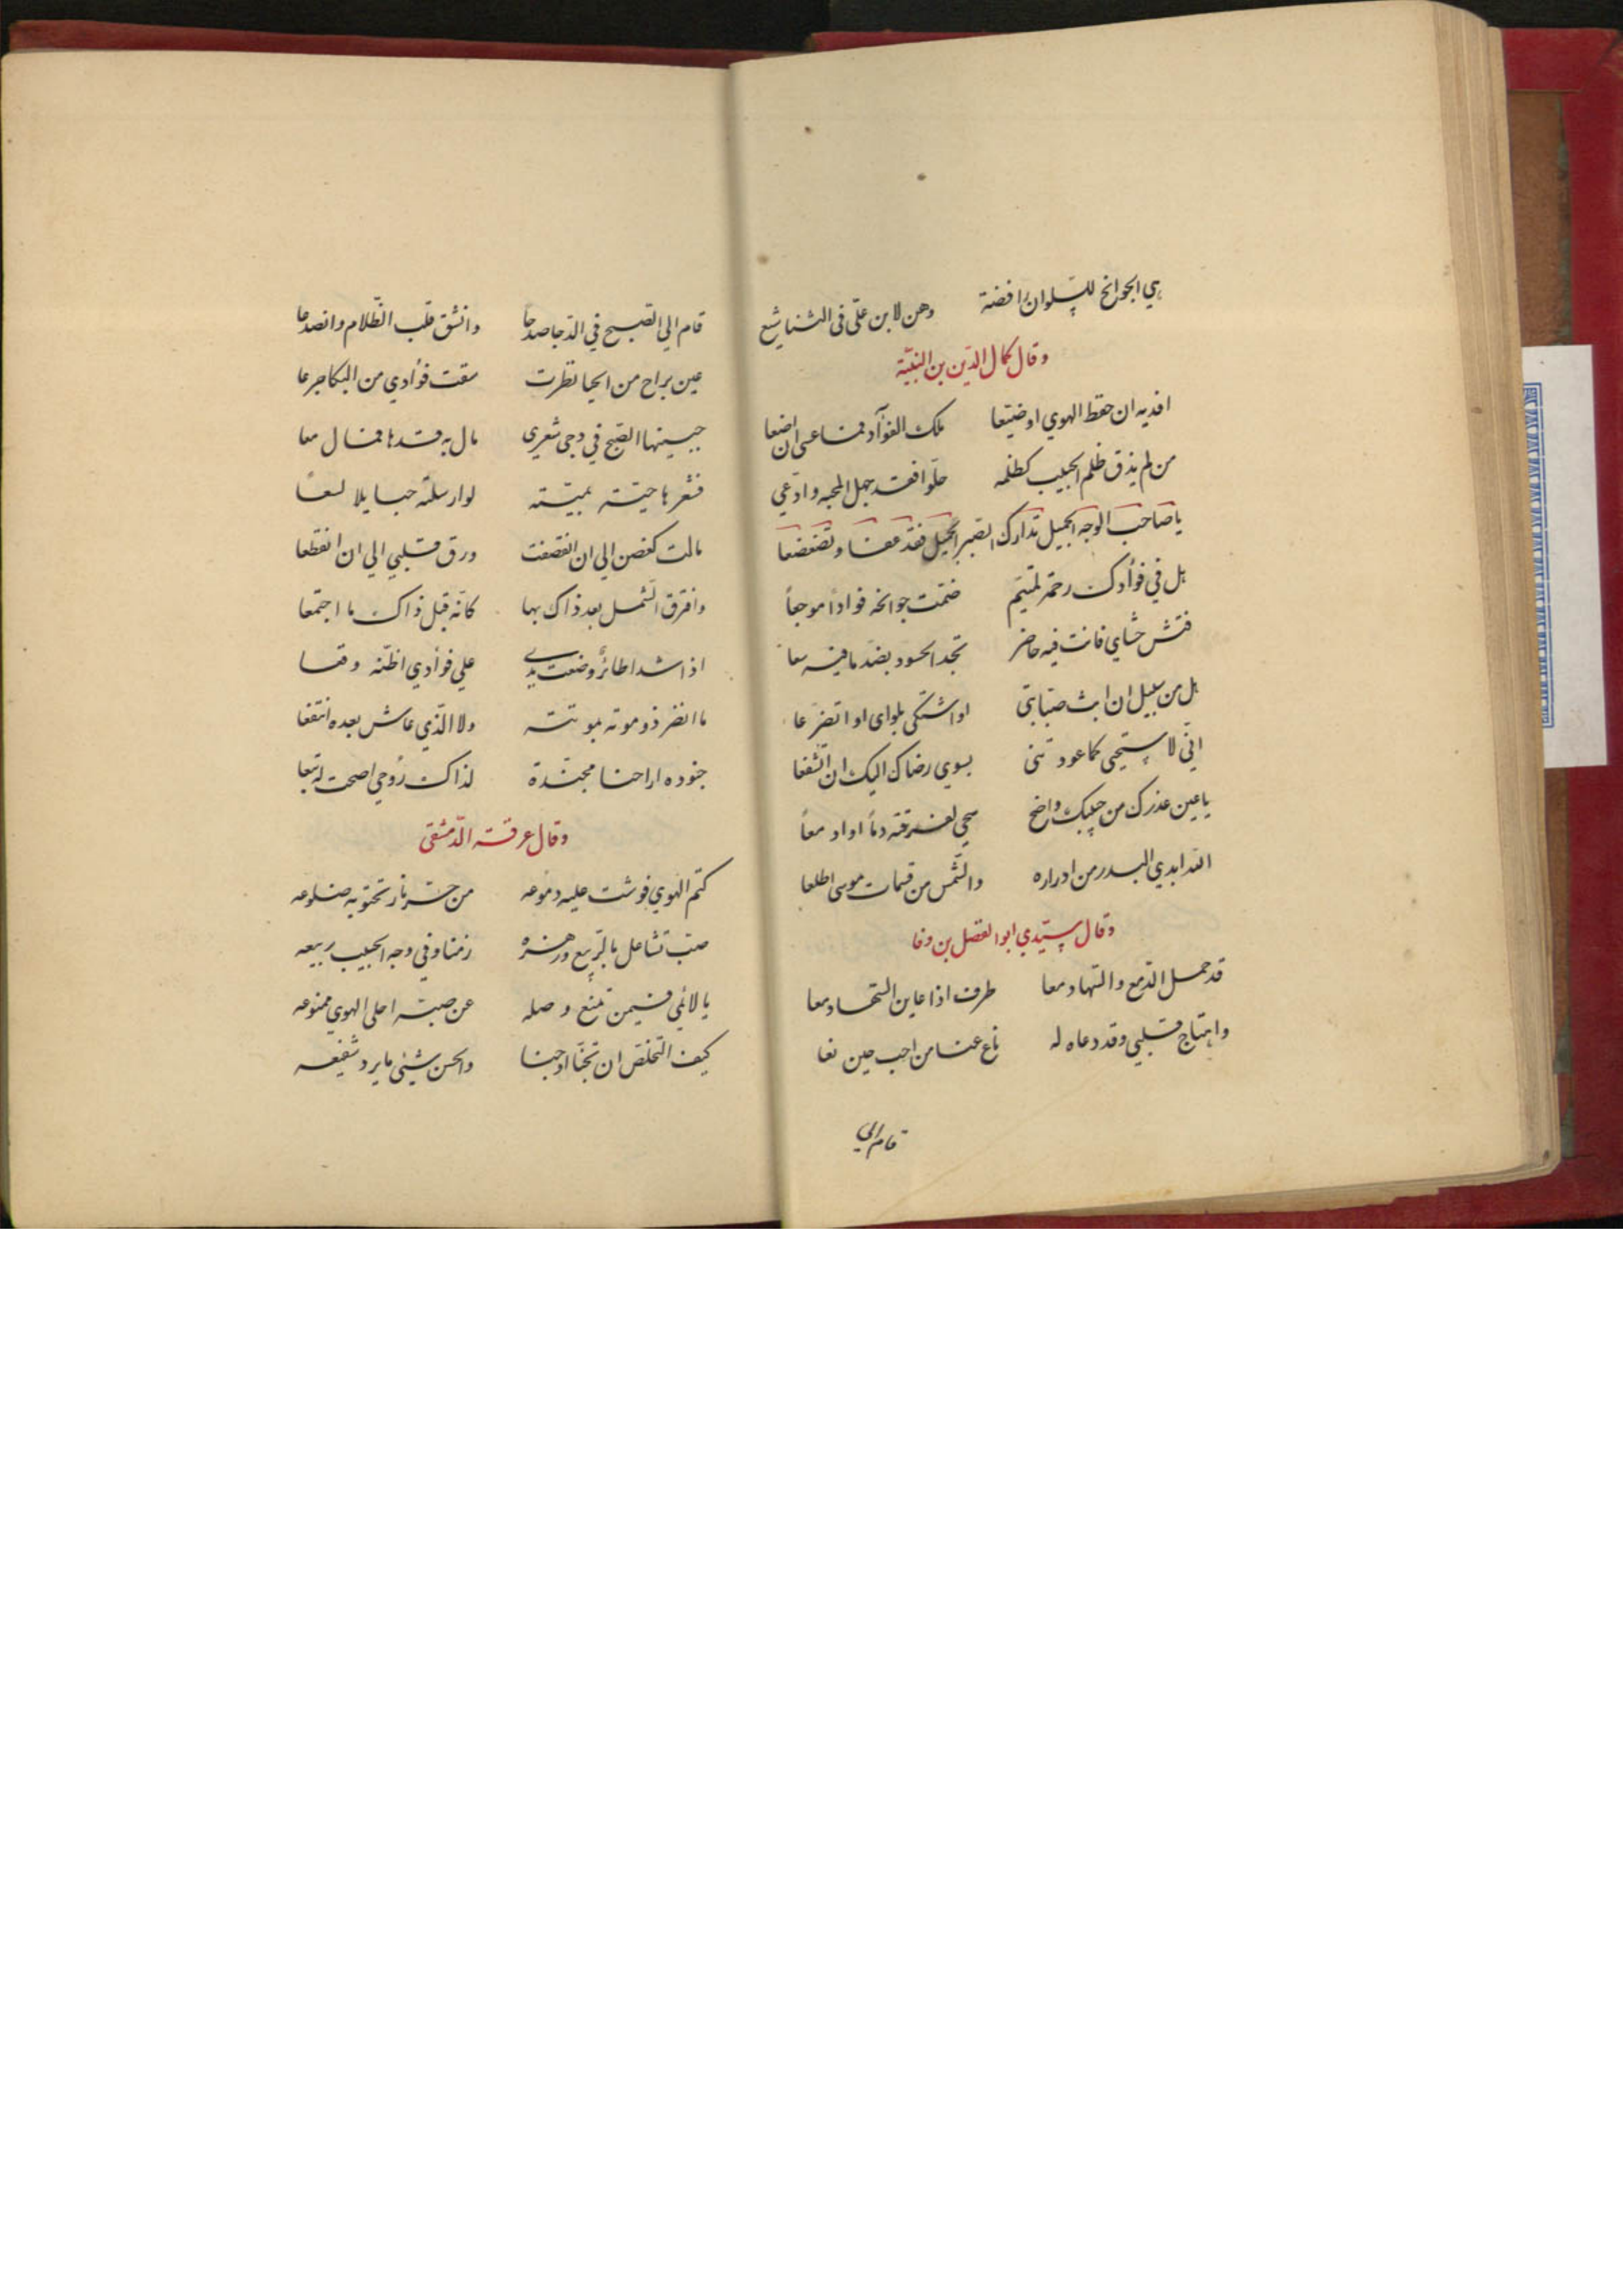 هي الجوانح للسلوان رافضة وهن لابن علي في الثنا شيع
وقال كمال الدين بن النبيه
افديه ان حفظ الهوي او ضيعا ملك الفؤاد فما عسى ان اصنعا
من لم يذق ظلم الحبيب كظلمه حلوا فقد جهل المحبه وادعي
يا صاحب الوجه الجميل تدارك الصبر الجميل فقد عفا وتضعضعا
هل في فؤادك رحمة لمتيم ضمت جوانحه فؤادا موجعاً
فتش حشاي فانت فيه حاضر تجد الحسود بضد ما فيه سعا
هل من سبيل ان ابث صبابتي او اشتكي بلواى او اتضرعا
اني لاستحيي كما عودتني بسوي رضاك اليك ان اتشفعا
يا عين عذرك من حبيبك واضح سحي لفرقته دماً او ادمعاً
الله ابدي البدر من ازراره والشمس من قسمات موسى اطلعا
وقال سيدي ابو الفضل بن وفا
قد حمل الدمع والسهاد معا طرف اذا عاين السحاد معا
واهتاج قلبي وقد دعاه له ناع عنا من احب حين نعا
قام الي
قام الي الصبح في الدجا صدحا وانشق قلب الظلام وانصدعا
عين براح من الحيا نظرت سقت فؤادي من البكا جرعا
جبينها الصبح في دجى شعري مال به قدها فمال معا
فثغرها حيته بميته لو ارسلته حبا بلا لسعاً
مالت كغصن الي ان انقصفت ورق قلبي الي ان انقطعا
وافترق الشمل بعد ذاك بها كانه قبل ذاك ما اجتمعا
اذا شدا طائر وضعت يدي علي فؤادي اظنه وقعا
ما انضر ذو موته بموتته ولا الذي عاش بعده انتفعا
جنوده ارواحنا مجندة لذاك روحي اصحت له تبعا
وقال عرقلة الدمشقي
كتم الهوي فوشت عليه دموعه من حر نار تحتويه ضلوعه
صب تشاغل بالربيع وزهره زمنا وفي وجه الحبيب ربيعه
يا لائمي فيمن تمنع وصله عن صبه احلى الهوي ممنوعه
كيف التخلص ان تجنا او جنا والحسن شيئي ما يرد شفيعه